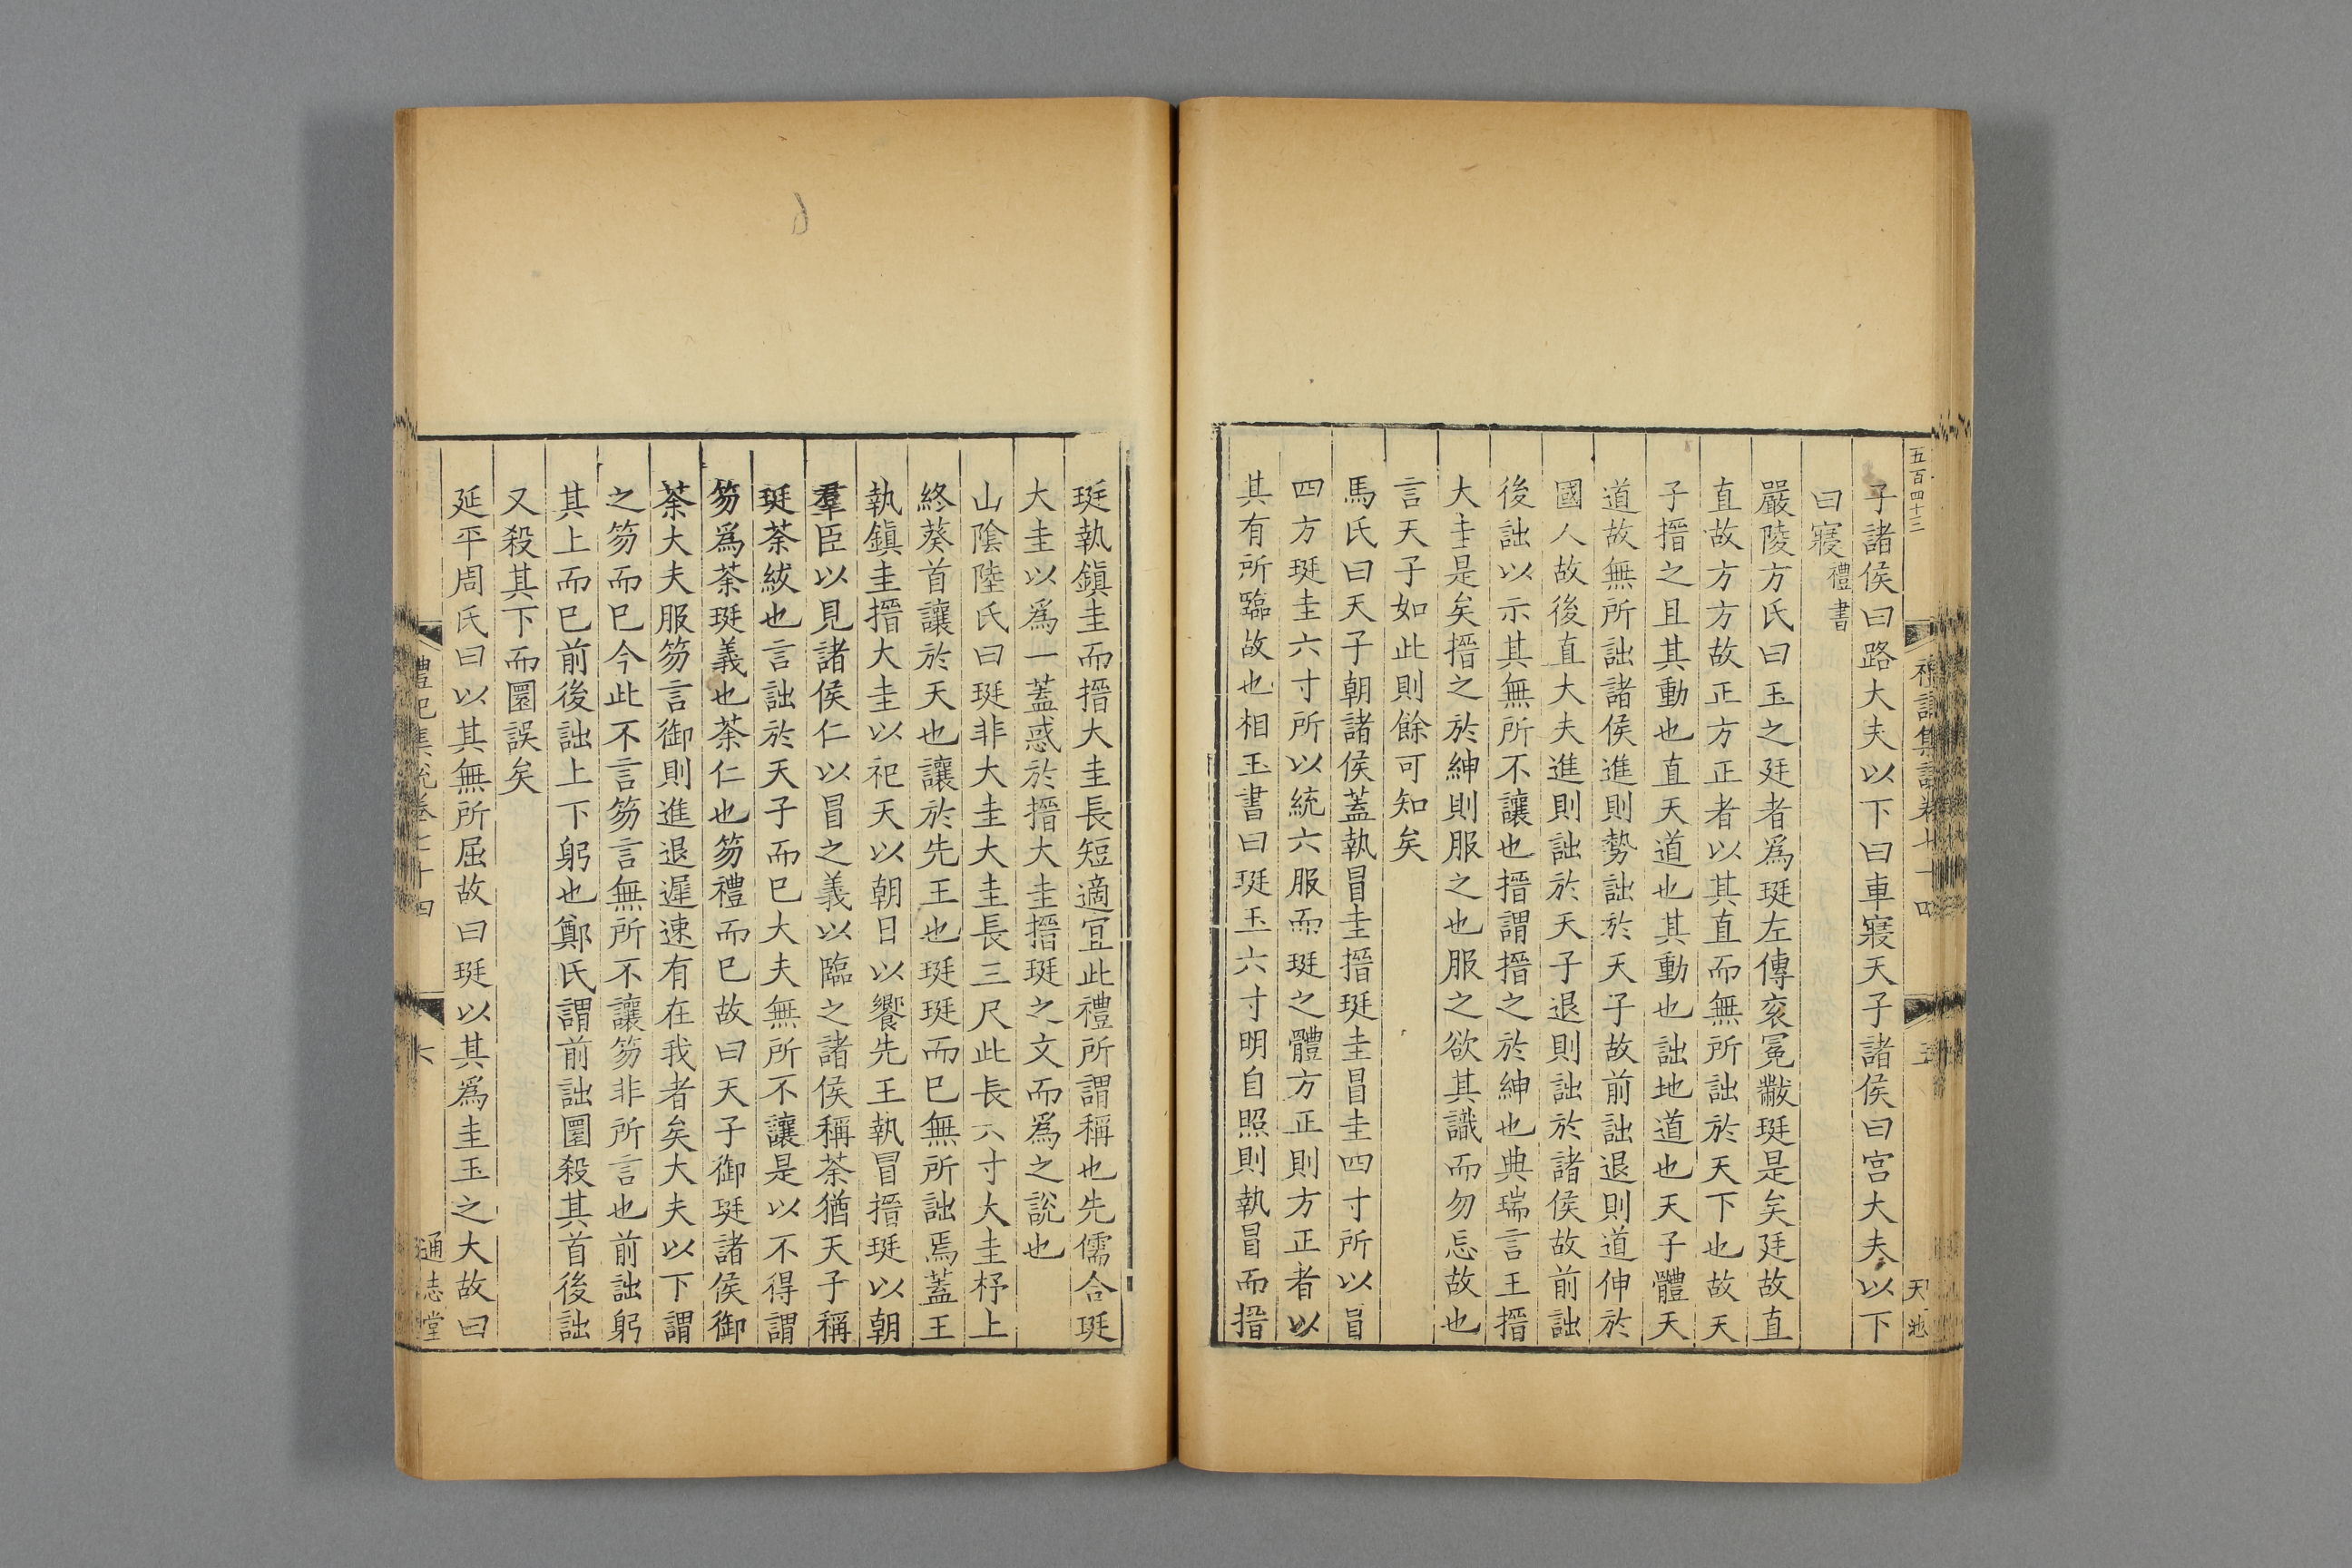 五百四十三
子諸侯曰路大夫以下曰車寢天子諸侯曰宫大夫以下
曰寢禮書
嚴陵方氏曰玉之珽者爲珽左傳衮冕黻珽是矣廷故直
直故方方故正方正者以其直而無所詘於天下也故天
子搢之且其動也直天道也其動也詘地道也天子體天
道故無所詘諸侯進則勢詘於天子故前詘退則道伸於
國人故後直大夫進則詘於天子退則詘於諸侯故前詘
後詘以示其無所不讓也搢謂搢之於紳也典瑞言王搢
大圭是矣搢之於紳則服之也服之欲其識而勿忘故也
言天子如此則餘可知矣
馬氏曰天子朝諸侯蓋執冒圭搢珽圭冒圭四寸所以冐
四方珽圭六寸所以統六服而珽之體方正則方正者以
其有所臨故也相玉書曰珽玉六寸明自照則執冒而搢
珽執鎮圭而搢大圭長短適宜此禮所謂稱也先儒合珽
大圭以爲一蓋惑於搢大圭搢珽之文而爲之說也
山陰陸氏曰珽非大圭大圭長三尺此長六寸大圭杼上
終葵首讓於天也讓於先王也珽珽而已無所詘焉蓋王
執鎮圭搢大圭以祀天以朝日以饗先王執冒搢珽以朝
羣臣以見諸侯仁以冒之義以臨之諸侯稱荼猶天子稱
珽荼紱也言詘於天子而已大夫無所不讓是以不得謂
笏爲荼珽義也荼仁也笏禮而已故曰天子御珽諸侯御
荼大夫服笏言御則進退遲速有在我者矣大夫以下謂
之笏而已今此不言笏言無所不讓笏非所言也前詘躬
其上而已前後詘上下躬也鄭氏謂前詘圜殺其首後詘
又殺其下而圜誤矣
延平周氏曰以其無所屈故曰珽以其爲圭玉之大故曰
通志堂